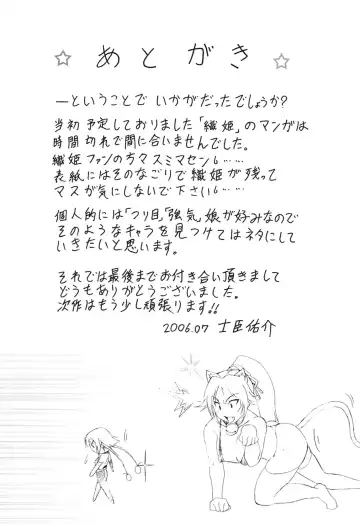 ☆ あとがき ☆
―ということで いかがだったでしょうか?
当初予定しておりました「織姫」のマンガは
時間切れで間に合いませんでした。
織姫ファンの方々スミマセン。……
表紙にはそのなごりで織姫が残って
マスが気にしないで下さい。……
個人的には「つり目」「強気」娘が好みなので
そのようなキャラを見つけてはネタにして
いきたいと思います。
それでは最後までお付き合い頂きまして
どうもありがとうございました。
次作はもう少し頑張ります!!
2006.07 士臣佑介